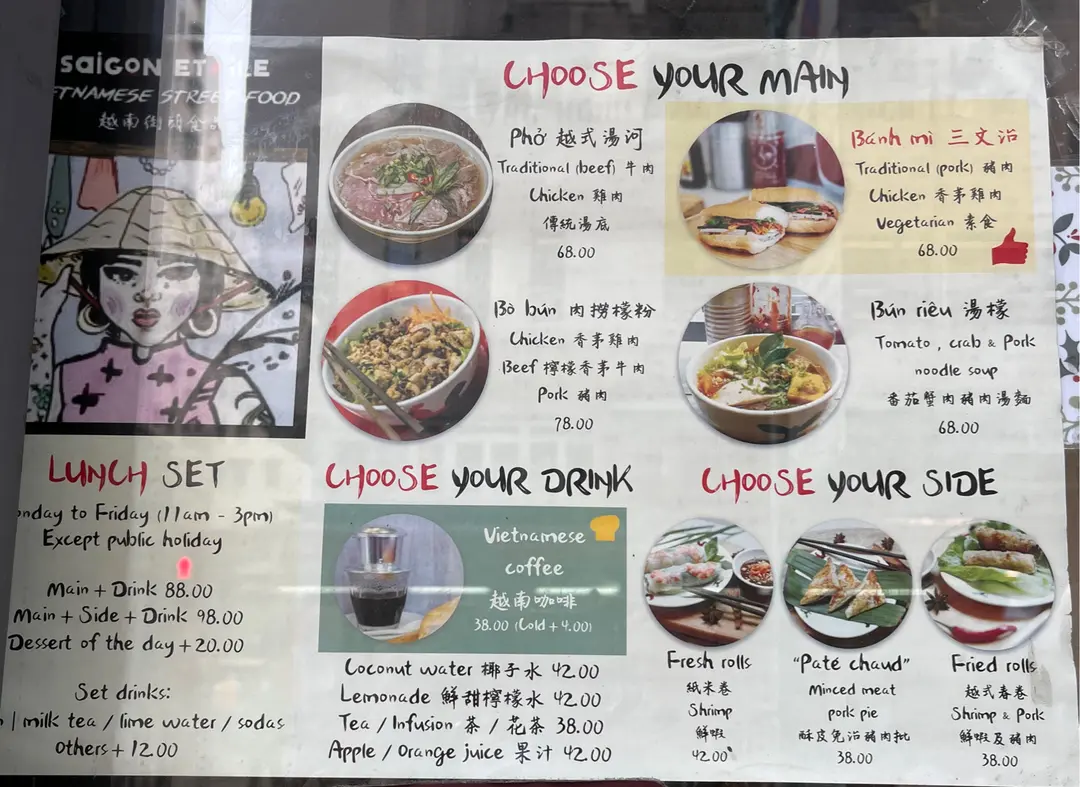 SaiGON ET LE
ETNAMESE STREET FOOD
越南街頭食
CHOOSE YOUR MAIN
Phở 越式湯河
Traditional (beef) 牛肉
Chicken 雞肉
傳統湯底
68.00
Bánh mì 三文治
Traditional (pork) 豬肉
Chicken 香茅雞肉
Vegetarian 素食
68.00
Bò bún 肉撈檬粉
Chicken 香茅雞肉
Beef 檸檬香茅牛肉
Pork 豬肉
78.00
Bún riêu 湯檬
Tomato , crab & Pork
noodle soup
番茄蟹肉豬肉湯麵
68.00
LUNCH SET
onday to Friday (11am - 3pm)
Except public holiday
Main + Drink 88.00
Main + Side + Drink 98.00
Dessert of the day + 20.00
Set drinks:
| milk tea / lime water / sodas
Others + 12.00
CHOOSE YOUR DRINK
Vietnamese
coffee
越南咖啡
38.00 (Cold + 4.00)
Coconut water 椰子水 42.00
Lemonade 鮮甜檸檬水 42.00
Tea / Infusion 茶 / 花茶 38.00
Apple / Orange juice 果汁 42.00
CHOOSE YOUR SIDE
Fresh rolls
紙米卷
Shrimp
鮮蝦
42.00
"Paté chaud"
Minced meat
pork pie
酥皮免治豬肉批
38.00
Fried rolls
越式春卷
Shrimp & Pork
鮮蝦及豬肉
38.00